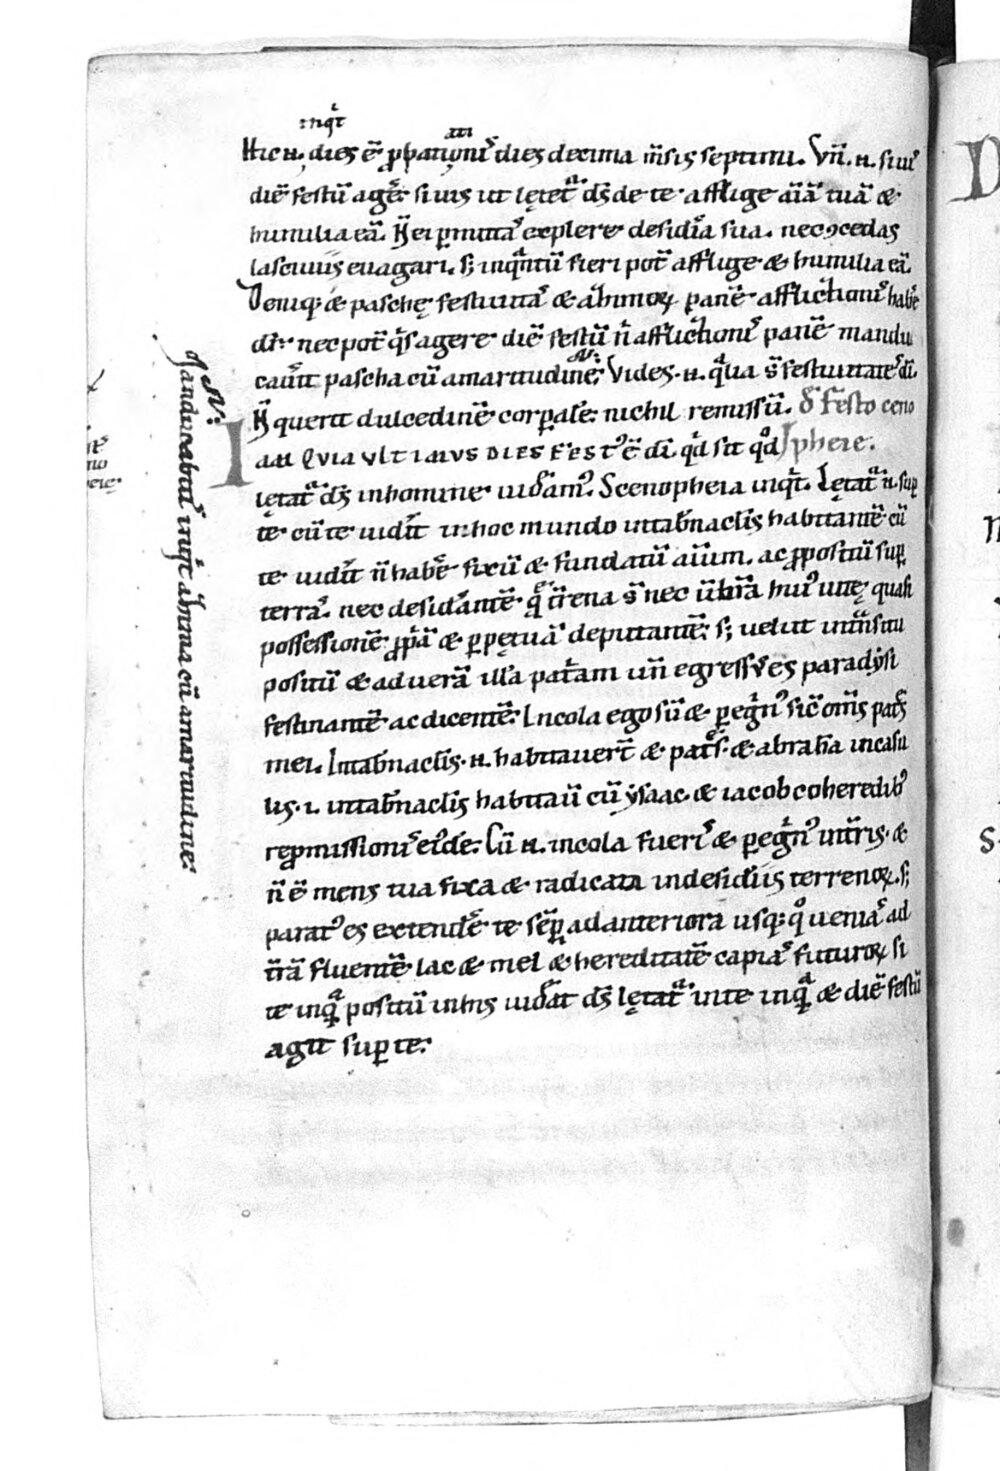 inq̄t
Hic n. dies ē ꝓpatiōnis dies decima m̄sis septimi. Vn̄. n. si uis
diē festū agēr. si uis ut lętet᷑ d̄s de te. afflige aīā tuā &
humilia eā. N̄ ei ꝑmittas explere desid̄ia sua. nec ꝯcedas
lasciuiis euagari. s; inq̄ntū fieri pot̄ afflige & humilia eā.
Deniq; & paschę festiuitas & azimoꝝ panē afflictionis habēr
dr̄. nec pot̄ q̄s agere diē festū n̄ afflictionis panē mandu
cauīt pascha cū amaritudine. Vides. n. q̄lia s̄ festiuitates dī.
N̄ querit dulcedinē corꝑalē. nichil remissū. d̄ Festo ceno
IAM QVIA VLTIMVS DIES FEST' ē dī. q̄d sit q̄d phere.
lętat᷑ d̄s in homine uideam'. Scenopheia inq̄t. Lętat᷑ n. sup
te cū te uid̄it in hoc mundo in tab̄naclis habitantē cū
te uid̄it n̄ habēre fixū & fundatū aīum. ac ꝓpositū suꝑ
terrā. nec desid̄antē q̄ t̄rena s̄ nec ūb̄rā hui' uitę quasi
possessionē ꝓp̄ā & ꝑpętuā deputantē. s; uelut in t̄nsitu
positū & ad uerā illā pat̄am un̄ egressus es paradysi
festinantē ac dicentē. Incola ego sū & ꝑeḡn' sic̄ om̄s pat̄s
mei. In tab̄naclis. n. habitauer̄t & pat̄s. & abrahā in casu
lis. i. in tab̄naclis habitauit cū ysaac. & iacob coheredib'
repmissionis ei'dē. Cū n. incola fueris & ꝑeḡn' in t̄ris. &
n̄ ē mens tua fixa & radicata in desid̄iis terrenoꝝ. s;
parat' es extendēr te semꝑ ad anteriora usq; q̄ uenias ad
t̄rā fluentē lac & mel & hereditatē capias futuroꝝ si
te inq̄ positū in his uid̄at d̄s lętat᷑ in te inq̄ & diē festū
agit suꝑ te.
Manducabitis inq̄t azima cū amaritudine.